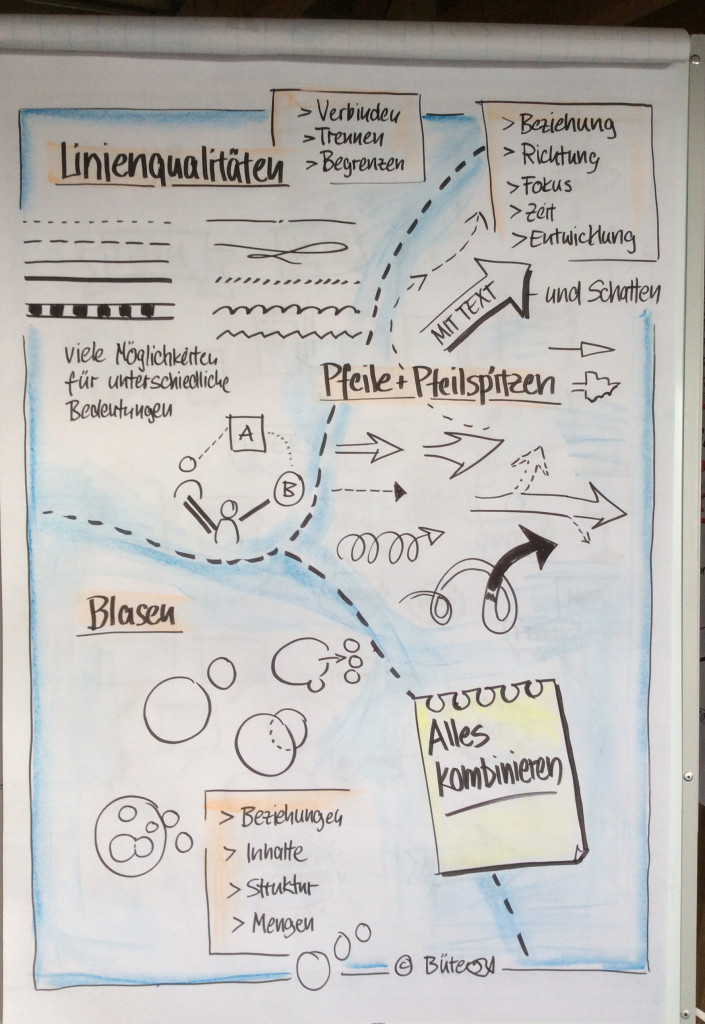 Linienqualitäten
> Verbinden
> Trennen
> Begrenzen
> Beziehung
> Richtung
> Fokus
> Zeit
> Entwicklung
MIT TEXT
und Schatten
viele Möglichkeiten
für unterschiedliche
Bedeutungen
Pfeile + Pfeilspitzen
A
B
Blasen
Alles
kombinieren
> Beziehungen
> Inhalte
> Struktur
> Mengen
©